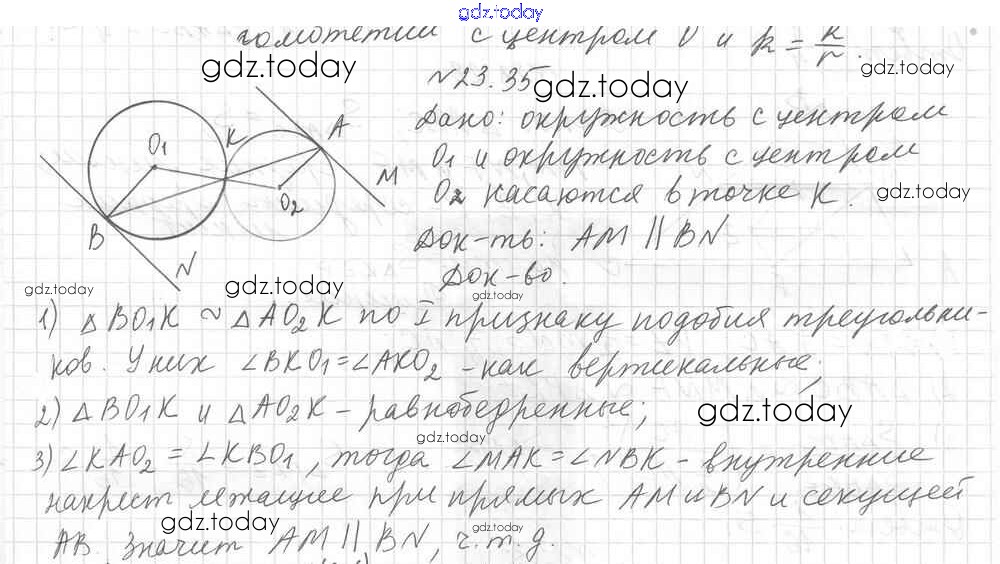 gdz.today
гомотетии с центром O и k = R/r.
gdz.today
gdz.today
N 23.35
gdz.today
Дано: окружность с центром
O1 и окружность с центром
O2 касаются в точке K.
gdz.today
Док-ть: AM || BN
Док-во.
O1
K
A
M
O2
B
N
gdz.today
gdz.today
gdz.today
1) △ BO1K ~ △ AO2K по I признаку подобия треугольни-
ков. У них ∠BKO1 = ∠AKO2 - как вертикальные;
2) △ BO1K и △ AO2K - равнобедренные;
gdz.today
gdz.today
3) ∠KAO2 = ∠KBO1, тогда ∠MAK = ∠NBK - внутренние
накрест лежащие при прямых AM и BN и секущей
gdz.today
gdz.today
AB. Значит AM || BN, ч.т.д.